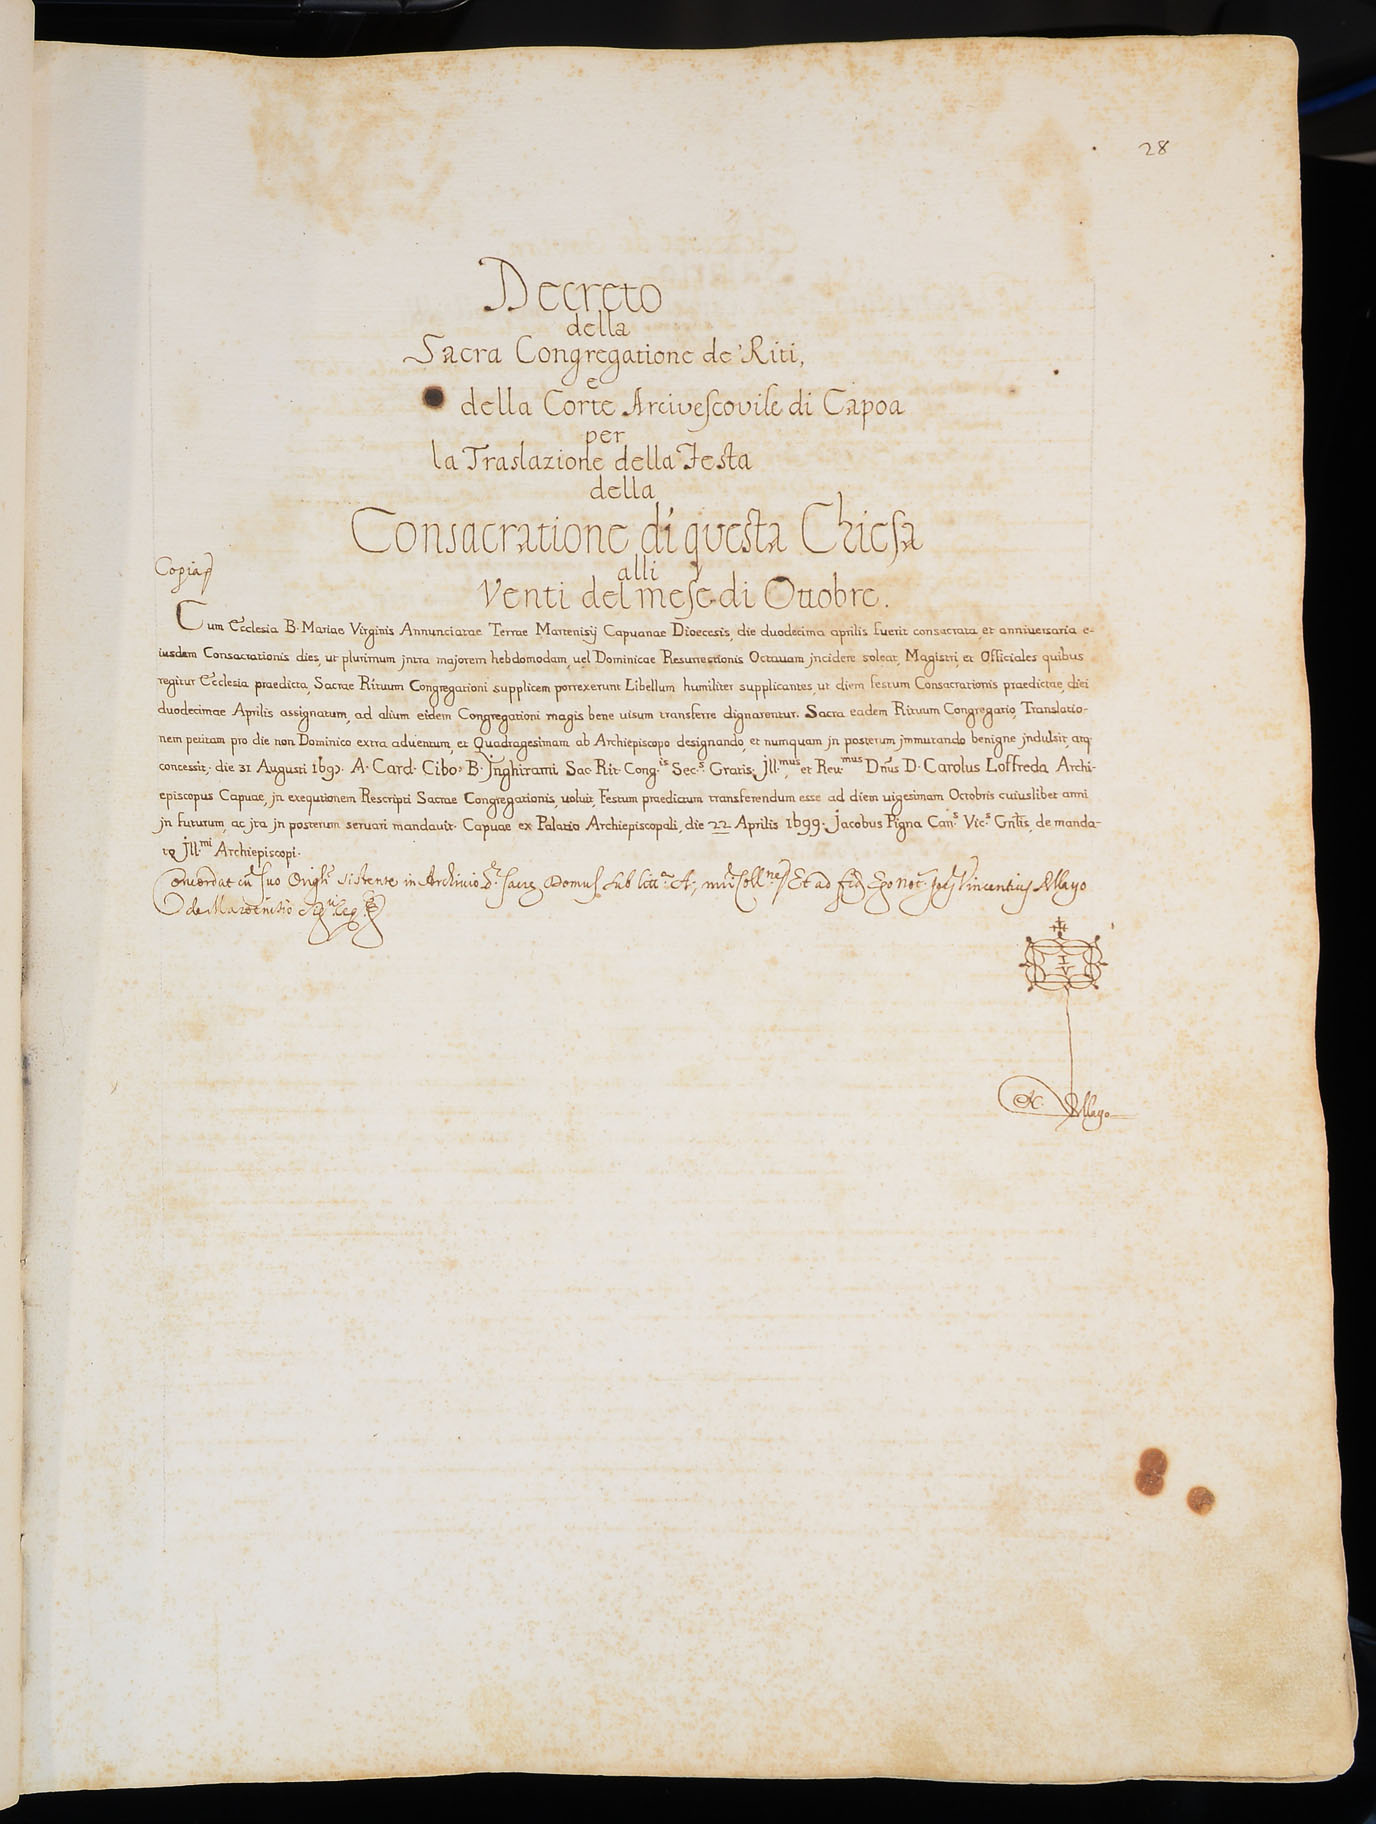 28
Decreto
della
Sacra Congregatione de' Riti,
e
della Corte Arciveſcovile di Capoa
per
la Traslazione della Festa
della
Consacratione di questa Chieſa
alli
Venti del meſe di Ottobre.
Copia
Cum Ecclesia B. Mariae Virginis Annunciatae Terrae Martenisij Capuanae Dioecesis, die duodecima aprilis fuerit consacrata, et anniversaria e-
iusdem Consacrationis dies, ut plurimum jntra majorem hebdomodam, uel Dominicae Resurrectionis Octauam jncidere soleat, Magistri, et Officiales quibus
regitur Ecclesia praedicta, Sacrae Rituum Congregationi supplicem porrexerunt Libellum humiliter supplicantes, ut diem festum Consacrationis praedictae, diei
duodecimae Aprilis assignatum, ad alium eidem Congregationi magis bene uisum transferre dignarentur. Sacra eadem Rituum Congregatio, Translatio-
nem petitam pro die non Dominico extra aduentum, et Quadragesimam ab Archiepiscopo designando, et numquam jn posterum jmmutando benigne jndulsit, atq
concessit, die 31 Augusti 1697. A. Card. Cibo, B. Jnghirami Sac. Rit. Cong.is Sec.s Gratis. Jll.mus, et Reu.mus Dnus D. Carolus Loffreda Archi-
episcopus Capuae, jn exequtionem Rescripti Sacrae Congregationis, uoluit, Festum praedictum transferendum esse ad diem uigesimam Octobris cuiuslibet anni
jn futurum, ac jta jn posterum seruari mandauit. Capuae ex Palatio Archiepiscopali, die 22 Aprilis 1699. Jacobus Pigna Can.s Vic.s Gnlis, de manda-
to Jll.mi Archiepiscopi.
Concordat cũ ſuo Origli sistente in Archivio ſacre Domuſ ſub litt.a A; Et ad Vincentius Allago
de Martenisio
I
V
Allago